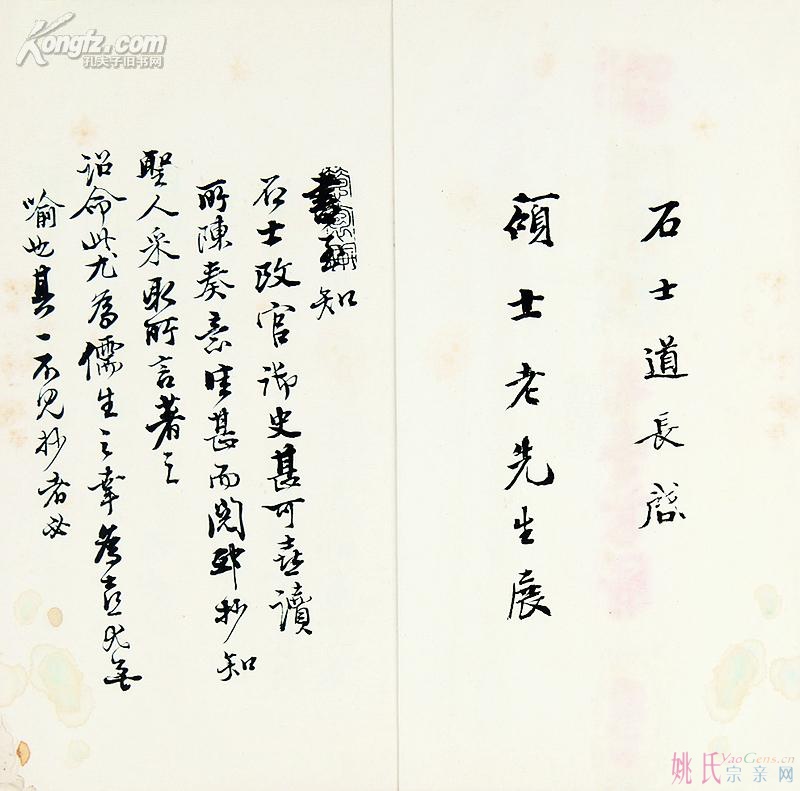 石士道長啟
碩士老先生展
書至知
石士改官御史甚可喜讀
所陳奏意佳甚而閱邸抄知
聖人采取所言著之
詔命此尤為儒生之幸為喜尤無
喻也其一不見抄者必
Kongfz.com
孔夫子旧书网
姚氏宗亲网
YaoGens.cn